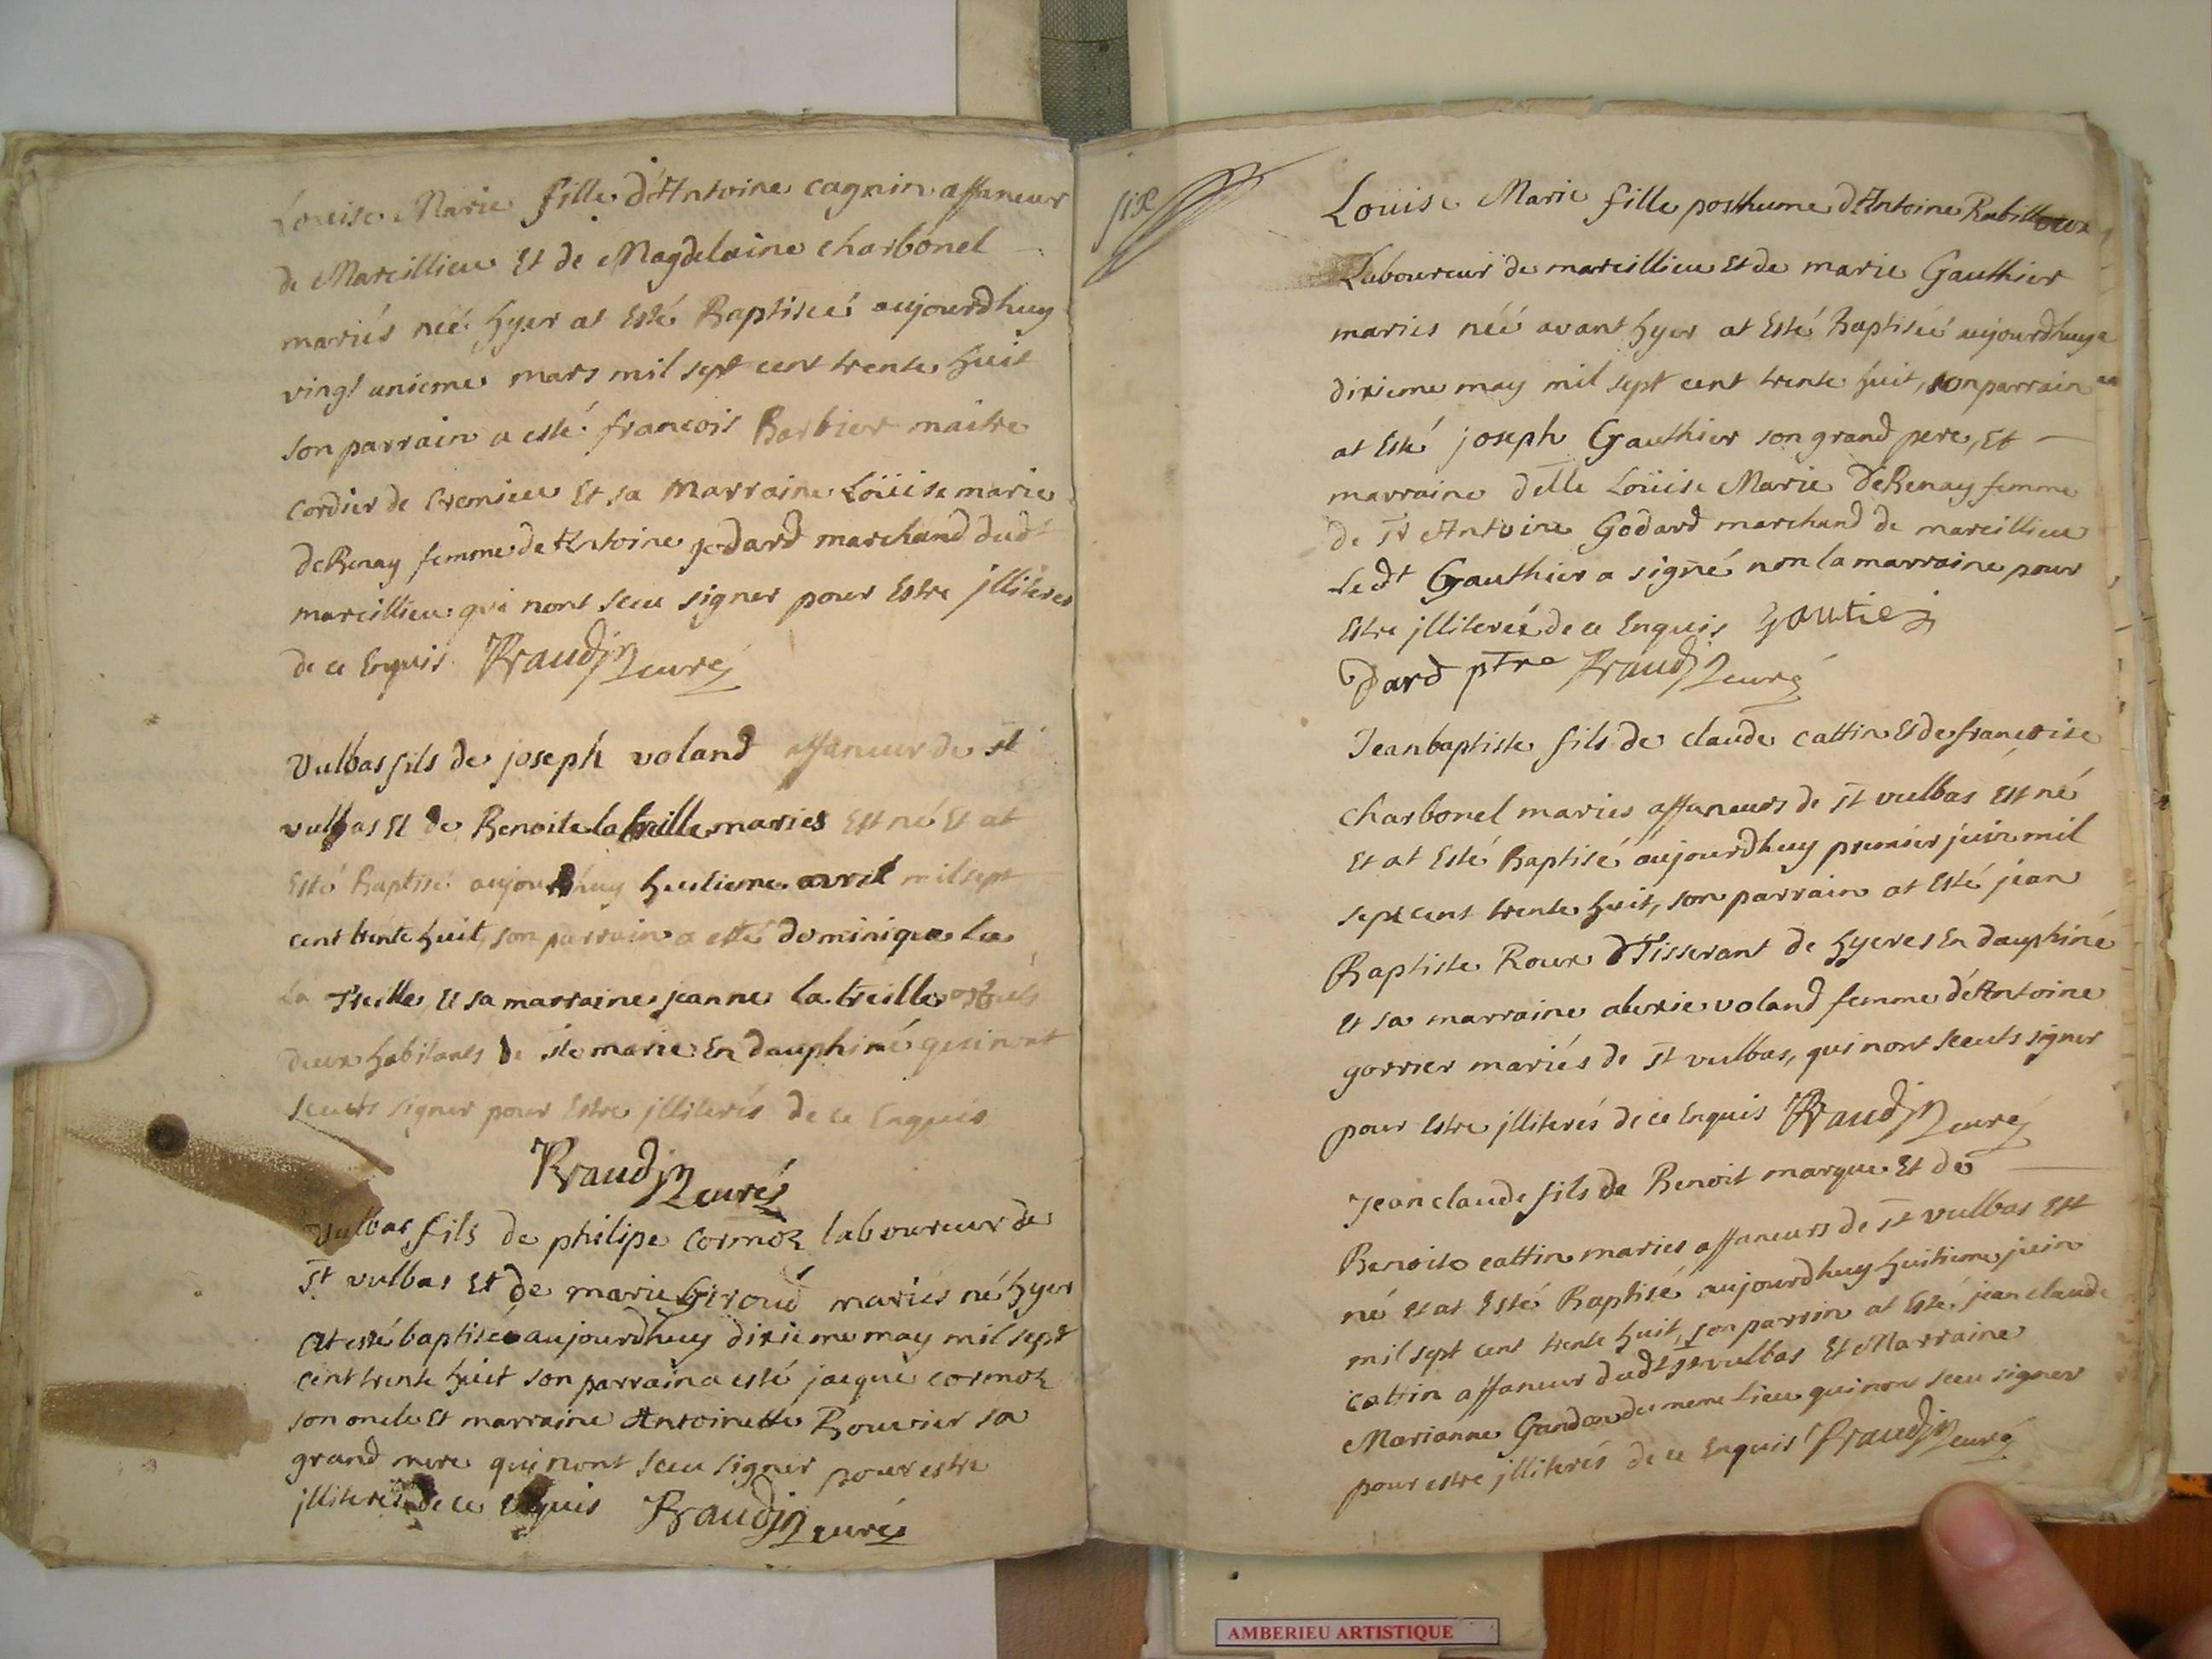 Louise Marie fille d'Antoine cagnin affaneur
de Marcillieu Et de Magdelaine charbonel
mariés néé hyer at Esté Baptiseé aujourdhuy
vingt unieme mars mil sept cent trente huit
son parrain a esté francois Barbier maitre
cordier de Cremieu Et sa Marraine Loüise marie
deRenay femme de Antoine godard marchand dudt
marcillieu qui nont sceu signer pour Estre jlliteres
de ce Enquis Fraudin curé
Vulbas fils de joseph voland affaneur de st
vulbas Et de Benoite la treille maries Est né Et at
Esté Baptisé aujourdhuy huitieme avril mil sept
cent trente huit, son parrain a esté dominique la
la Treille, Et sa marraine jeanne la treille
deux habitants de ste marie En dauphiné qui nont
sceuts signer pour Estre jlliterés de ce Enquis
Fraudin curé
Vulbas fils de philipe Cormoz laboureur de
St vulbas Et de marie Giroud mariés né hyer
at esté baptisé aujourdhuy dixieme may mil sept
cent trente huit son parrain a esté jacque cormoz
son oncle Et marraine Antoinette Bouvier sa
grand mere qui nont sceu signer pour estre
jlliterés de ce Enquis Fraudin curé
six
Loüise Marie fille posthume d'Antoine Rabilloux
Laboureur de marcillieu Et de marie Gauthier
maries néé avant hyer at Esté Baptiséé aujourdhuy
dixieme may mil sept cent trente huit, son parrain
at Esté joseph Gauthier son grand pere, Et
marraine delle Loüise Marie deRenay femme
de Sr Antoine Godard marchand de marcillieu
Ledt Gauthier a signé non la marraine pour
Estre jlliteréé de ce Enquis gautier
Dard ptre Fraudin curé
Jeanbaptiste fils de claude cattin Et de francoise
charbonel maries affaneurs de St vulbas Est né
Et at Esté Baptisé aujourdhuy premier juin mil
sept cent trente huit, son parrain at Esté jean
Baptiste Roux Tisserant de hyeres En dauphiné
Et sa marraine alexie voland femme d'Antoine
gorrier mariés de St vulbas, qui nont sceuts signer
pour Estre jlliterés de ce Enquis Fraudin curé
Jean claude fils de Benoit marque Et de
Benoite cattin maries affaneurs de St vulbas Est
né Et at Esté Baptisé aujourdhuy huitieme juin
mil sept cent trente huit, son parrin at Esté jean claude
cattin affaneur dudt St vulbas Et Marraine
Marianne du meme Lieu qui nont sceu signer
pour estre jlliterés de ce Enquis Fraudin curé
AMBERIEU ARTISTIQUE